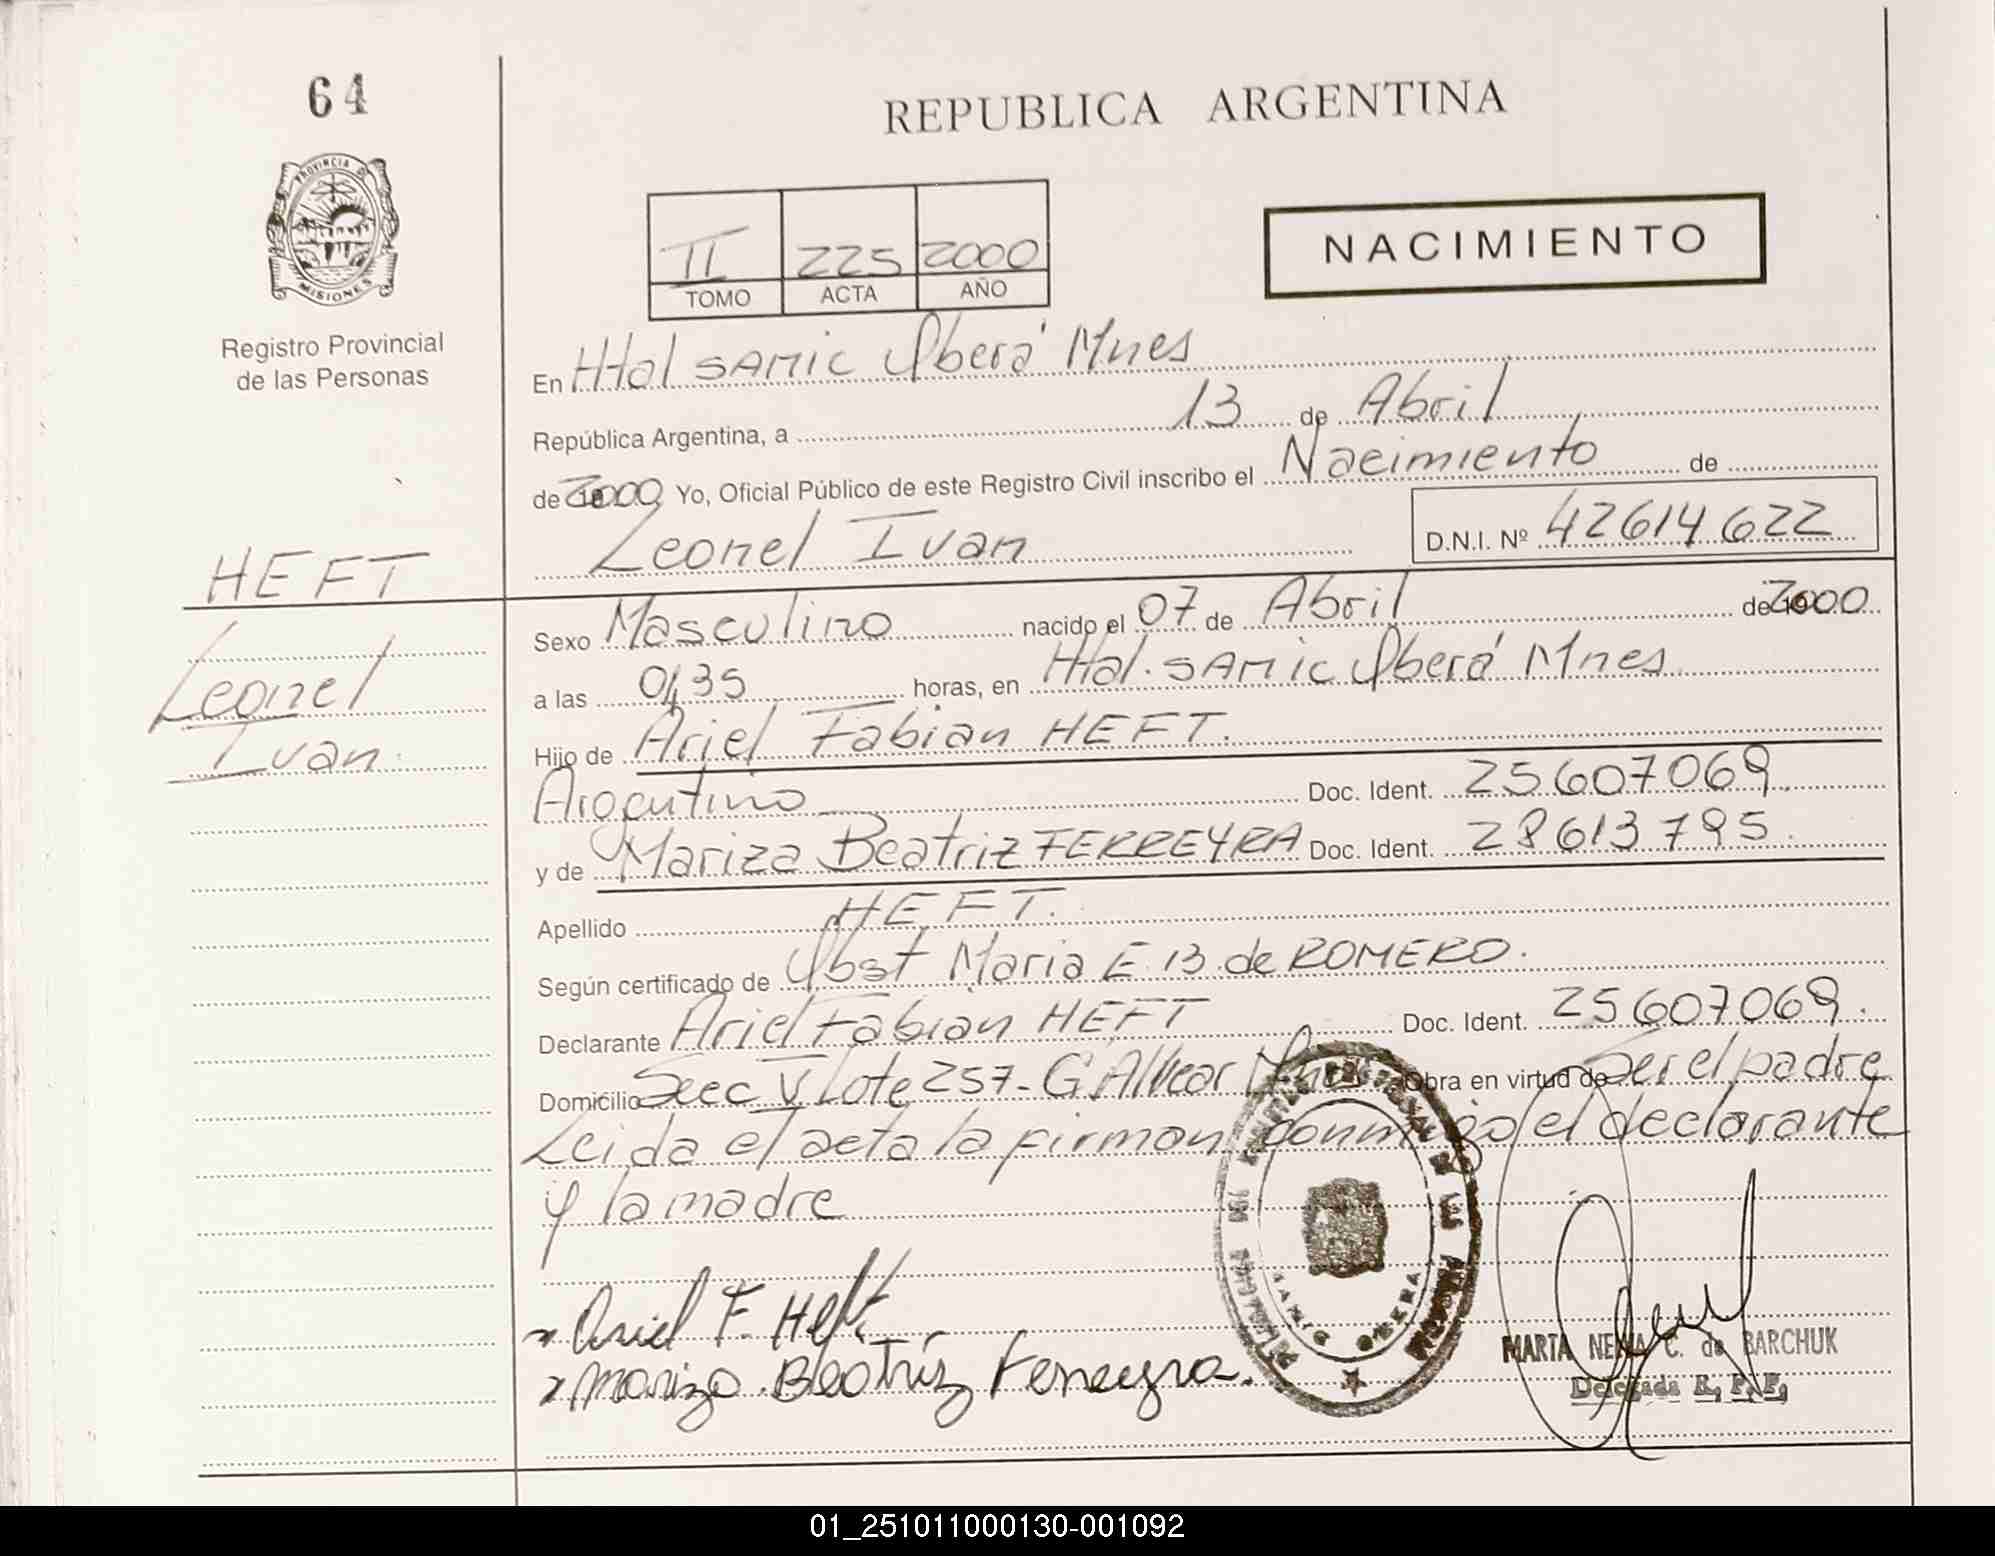 64
REPUBLICA ARGENTINA
PROVINCIA DE
MISIONES
Registro Provincial
de las Personas
II 225 2000
TOMO ACTA AÑO
NACIMIENTO
En Htal SAMIC Oberá Mnes
República Argentina, a 13 de Abril
de 2000 Yo, Oficial Público de este Registro Civil inscribo el Nacimiento de
Leonel Ivan D.N.I. Nº 42614622
HEFT
Leonel
Ivan.
Sexo Masculino nacido el 07 de Abril de 2000
a las 04,35 horas, en Htal. SAMIC Oberá Mnes
Hijo de Ariel Fabian HEFT.
Argentino Doc. Ident. 25607069.
y de Mariza Beatriz FERREYRA Doc. Ident. 28613795.
Apellido HEFT.
Según certificado de Obst Maria E. B. de ROMERO.
Declarante Ariel Fabian HEFT Doc. Ident. 25607069.
Domicilio Secc V Lote 257 - G. Alvear Mnes Obra en virtud de Ser el padre
Leida el acta la firman conmigo el declarante
y la madre
Ariel F. Heft
Mariza Beatriz Ferreyra.
SAMIC OBERA
MARTA C. de BARCHUK
Delegada R. P. P.
01_251011000130-001092